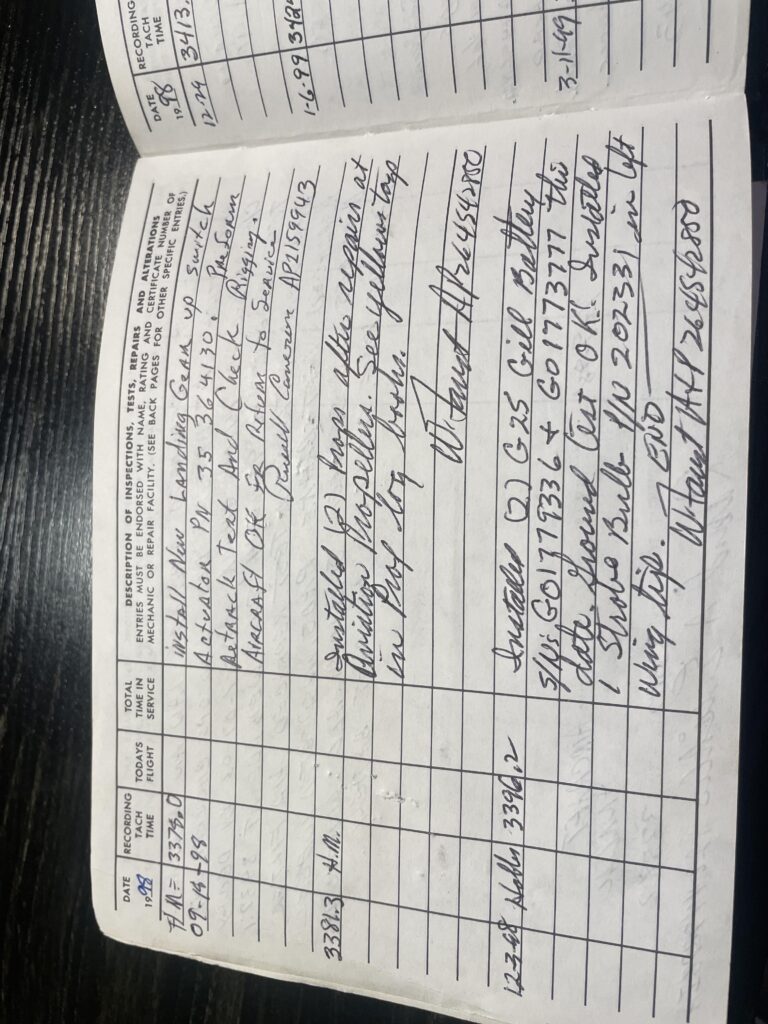 DATE
19 98
RECORDING TACH TIME
TODAYS FLIGHT
TOTAL TIME IN SERVICE
DESCRIPTION OF INSPECTIONS, TESTS, REPAIRS AND ALTERATIONS
ENTRIES MUST BE ENDORSED WITH NAME, RATING AND CERTIFICATE NUMBER OF
MECHANIC OR REPAIR FACILITY. (SEE BACK PAGES FOR OTHER SPECIFIC ENTRIES.)
H.M= 3378.0 install New Landing Gear up switch
09-18-98 Actuator PN 35 364130. Preform
Retrack test And Check Rigging.
Aircraft OK For Return to Service
Russell Cameron AP2159943
3381.3 H.M. Installed (2) Props after repairs at
Aviation Propellers. See yellow tags
in Prop log books.
AP264542850
12-3-98 Hobbs 3396.2 Installed (2) G25 Gill Battery
S/N: G01779336 & G01773777 this
date. Ground test OK. Installed
1 Strobe Bulb P/N 202331 in left
Wing tip. END
A&P 264542850
DATE
19 98
RECORDING TACH TIME
12-29 3413.
1-6-99 342
3-11-99